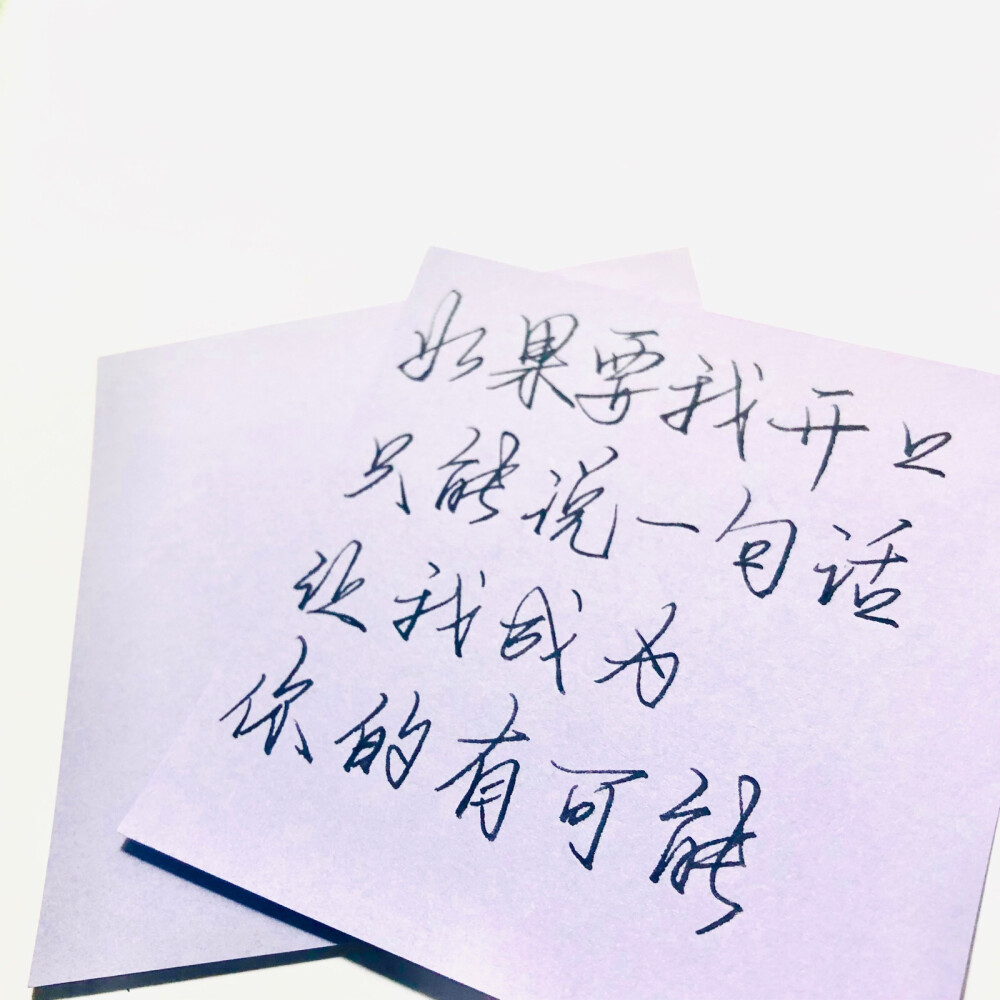 如果要我开口
只能说一句话
让我成为
你的有可能